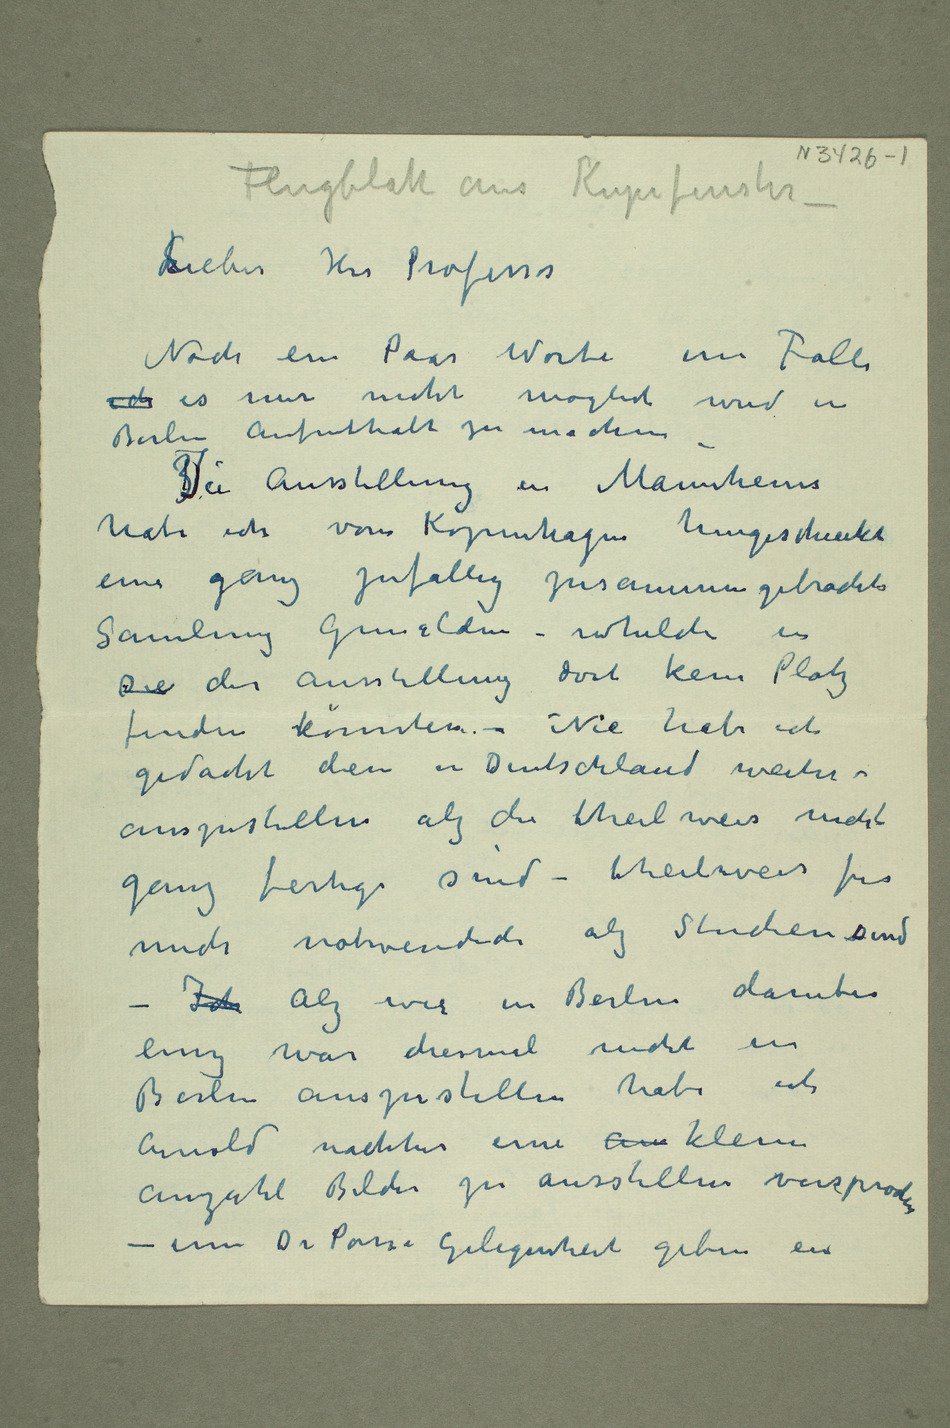 N 3426-1
Flugblatt aus Kupefenster –
Lieber Her Professor
Noch ein Paar Worte im Falle
ich es mir nicht möglich wird in
Berlin Aufenthalt zu machen –
Die Ausstellung in Mannheim
habe ich von Kopenhagen hingeschickt
eine ganz zufällig zusammengebrachte
Samlung Gemälden –
Die der Ausstellung dort kein Platz
finden könnten. – Nie habe ich
gedacht diese in Deutschland weiter –
auszustellen alz die theilweis nicht
ganz fertige sind – theilweis für
mich notwendich alz Studien sind
– Ich Alz wir in Berlin darüber
einig war diesmal nicht in
Berlin auszustellen habe ich
Arnold nachher eine kleine
Anzahl Bilder zu ausstellen versprochen
– um Dr Posse Gelegenheit geben ein